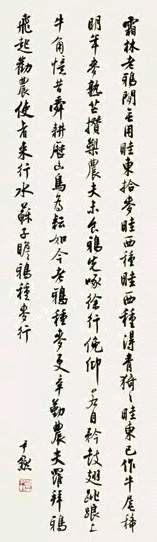 霜林老鴉閑无用畦東拾麥畦西種畦西種得青猗〻畦東已作牛尾稀
明年麥熟芒攢槊農夫未食鴉先啄徐行俛仰若自矜鼓翅跳踉上
牛角憶昔舜耕歷山鳥為耘如今老鴉種麥更辛勤農夫羅拜鴉
飛起勸農使者來行水 蘇子瞻鴉種麥行
尹默